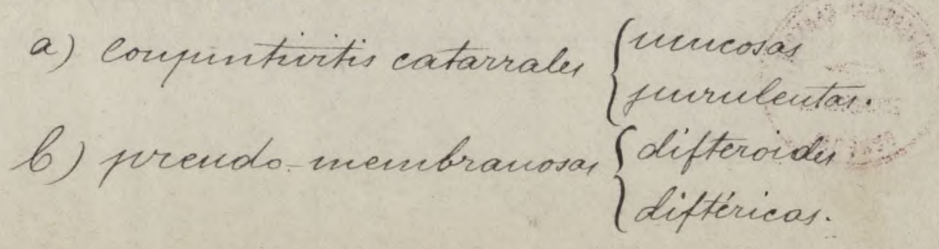 a) conjuntivitis catarrales { mucosas
purulentas.
b) pseudo-membranosas { difteroides
diftéricas.